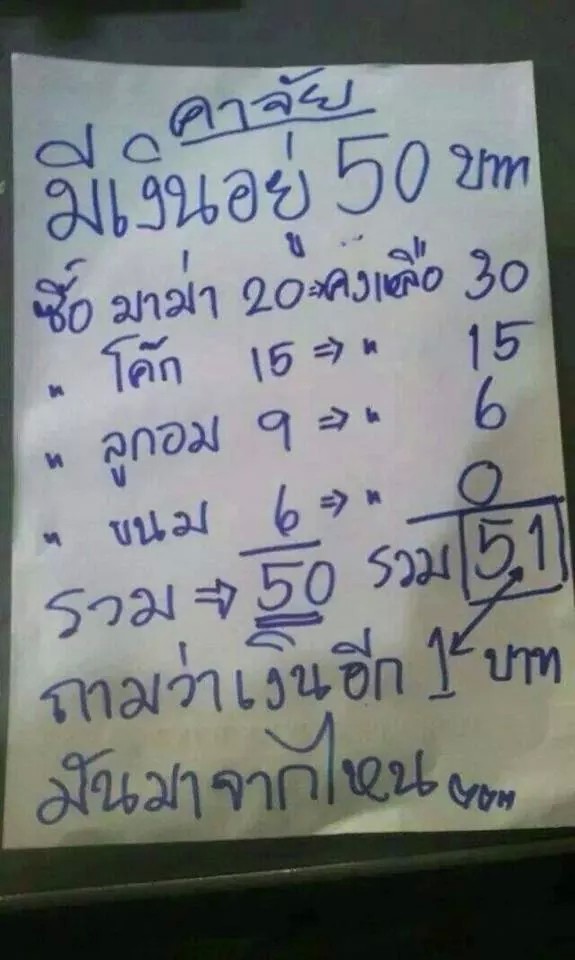 คาจัย
มีเงินอยู่ 50 บาท
ซื้อ มาม่า 20 => คงเหลือ 30
" โค๊ก 15 => " 15
" ลูกอม 9 => " 6
" ขนม 6 => " 0
รวม => 50 รวม 51
ถามว่าเงินอีก 1 บาท
มันมาจากไหน